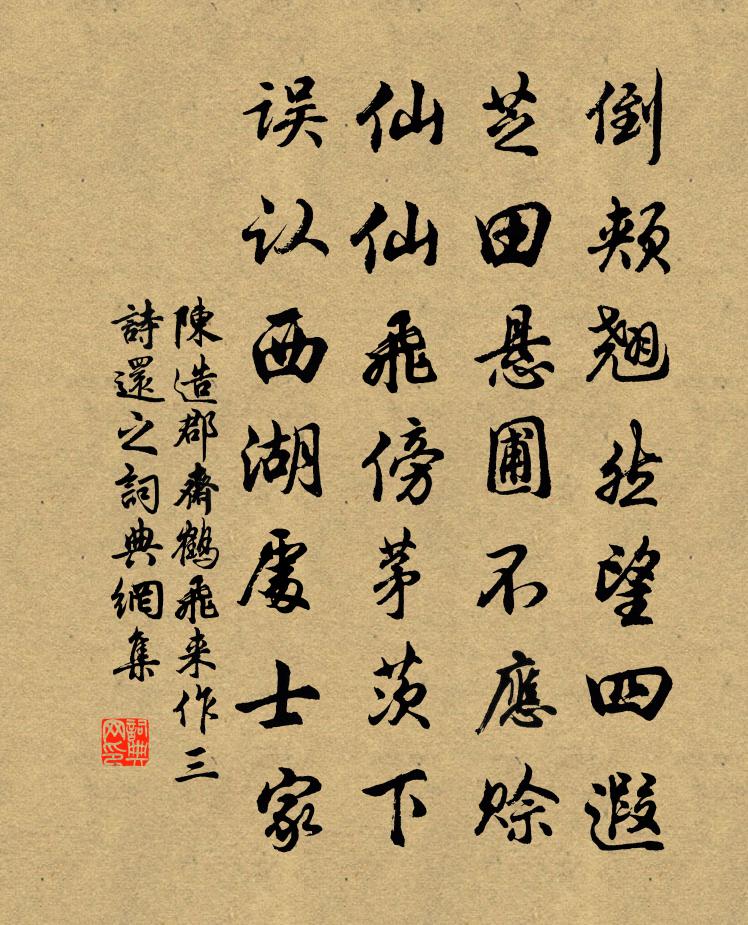 倒颊翘然望四遐
芝田悬圃不應赊
仙仙飛傍茅茨下
误认西湖處士家
陳造郡齋鶴飛来作三
詩還之詞典網集
詞典网印